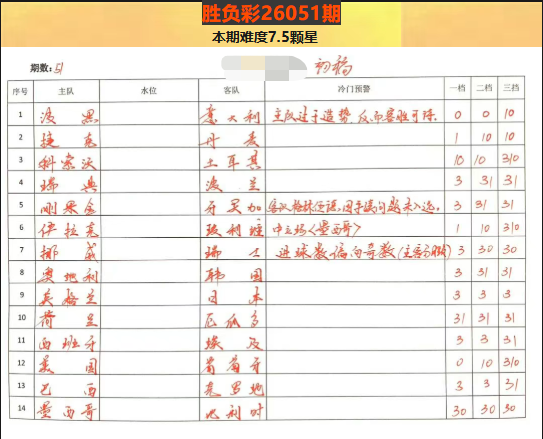 胜负彩26051期
本期难度7.5颗星
期数: 51 初稿
序号 主队 水位 客队 冷门预警 一档 二档 三档
1 波黑 意大利 主队过于造势,反而客胜可 0 0 10
2 捷克 丹麦 1 10 10
3 科索沃 土耳其 10 10 310
4 瑞典 波兰 3 31 31
5 刚果金 牙买加 客队 因手续问题未入选。 3 31 31
6 伊拉克 玻利维 中立场<墨西哥> 1 10 310
7 挪威 瑞士 进球数偏向奇数(主客 3 30 30
8 奥地利 韩国 3 31 31
9 英格兰 日本 3 3 3
10 荷兰 厄瓜多 31 31 31
11 西班牙 埃及 3 3 31
12 美国 葡萄牙 0 10 310
13 巴西 克罗地 3 3 31
14 墨西哥 比利时 30 30 30